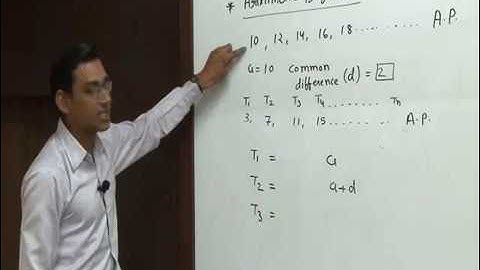 * Arithmetic
10, 12, 14, 16, 18 .......... A.P.
a = 10 common difference (d) = 2
T1 T2 T3 T4 ........ Tn
3, 7, 11, 15 ........ A.P.
T1 = a
T2 = a+d
T3 =